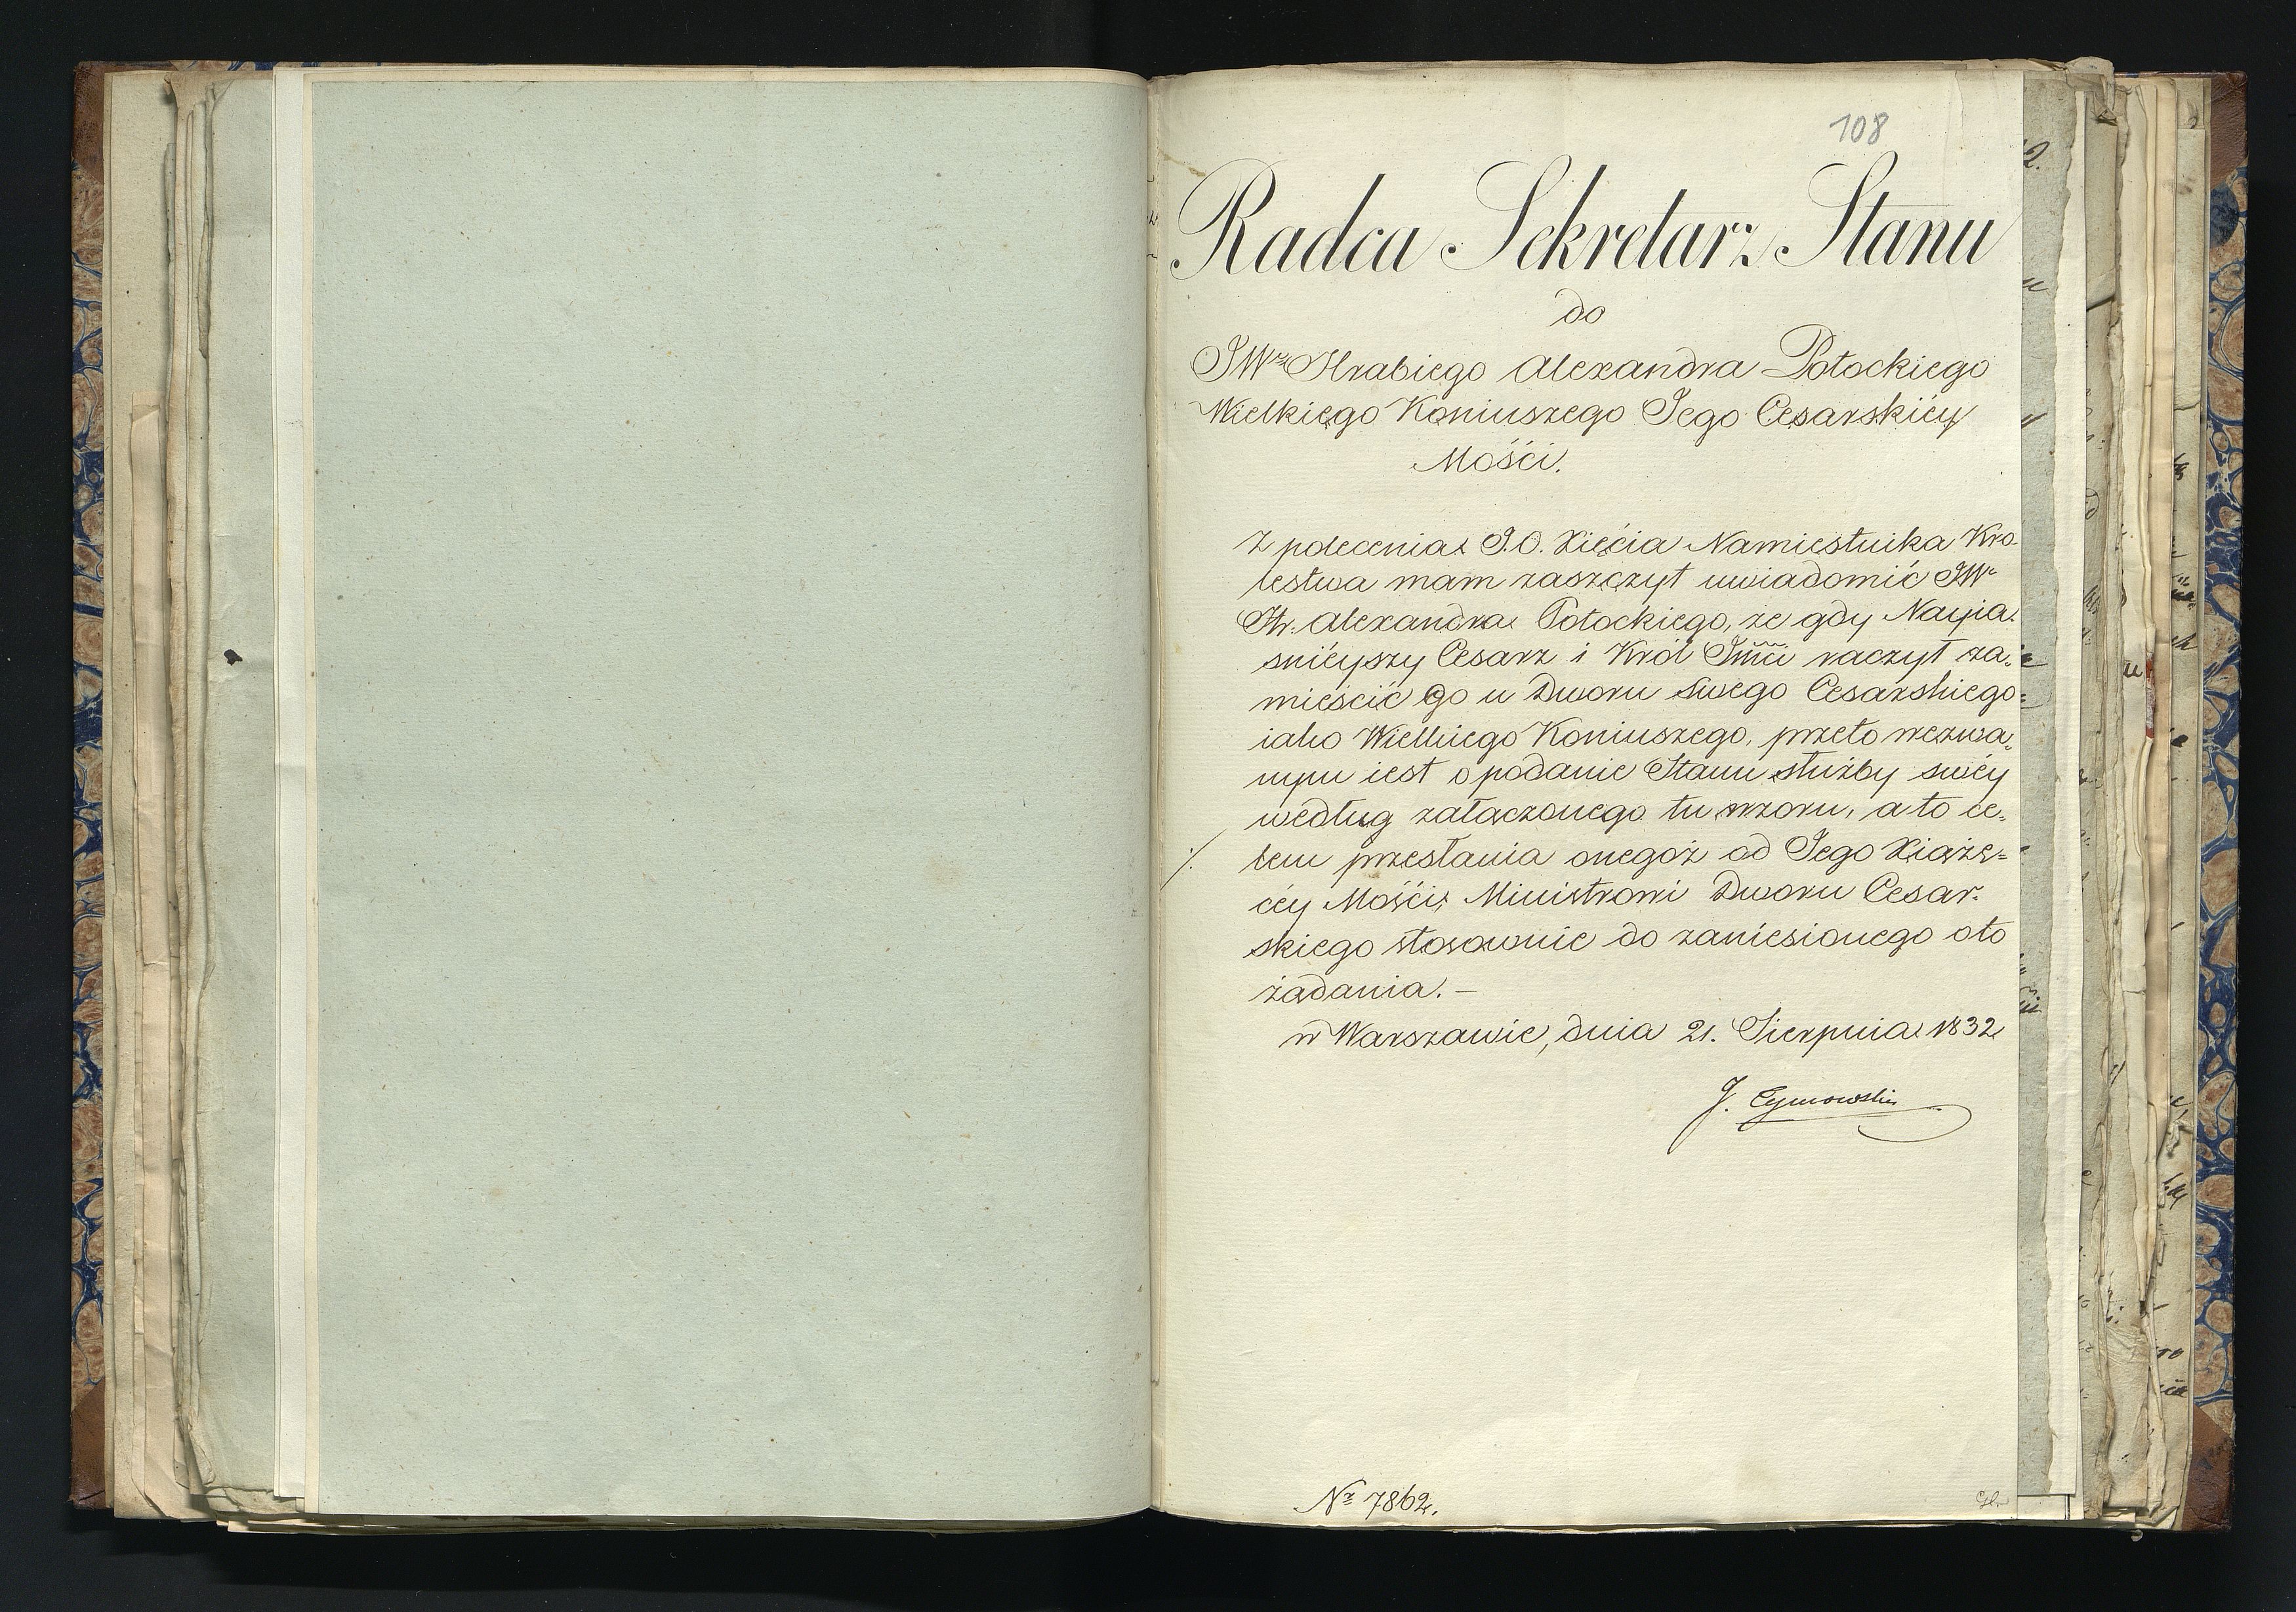 108
Radca Sekretarz Stanu
do
JWo Hrabiego Alexandra Potockiego
Wielkiego Koniuszego Jego Cesarskiéy
Mości.
Z polecenia J.O. Xięcia Namiestnika Kro
lestwa mam zaszczyt uwiadomić JWo
Hr. Alexandra Potockiego, że gdy Nayia.
śnieyszy Cesarz i Król Jmci raczył za„
mieścić go u Dworu Swego Cesarskiego
iako Wielkiego Koniuszego, przeto wezwa„
nym iest o podanie Stanu służby swéy
według załączonego tu wzoru, a to ce„
lem przesłania onegoż od Jego Xiąże=
céy Mości, Ministrowi Dworu Cesar.
skiego stosownie do zaniesionego oto
żądania. –
w Warszawie, dnia 21. Sierpnia 1832
J. Tymowski
Nr 7862.